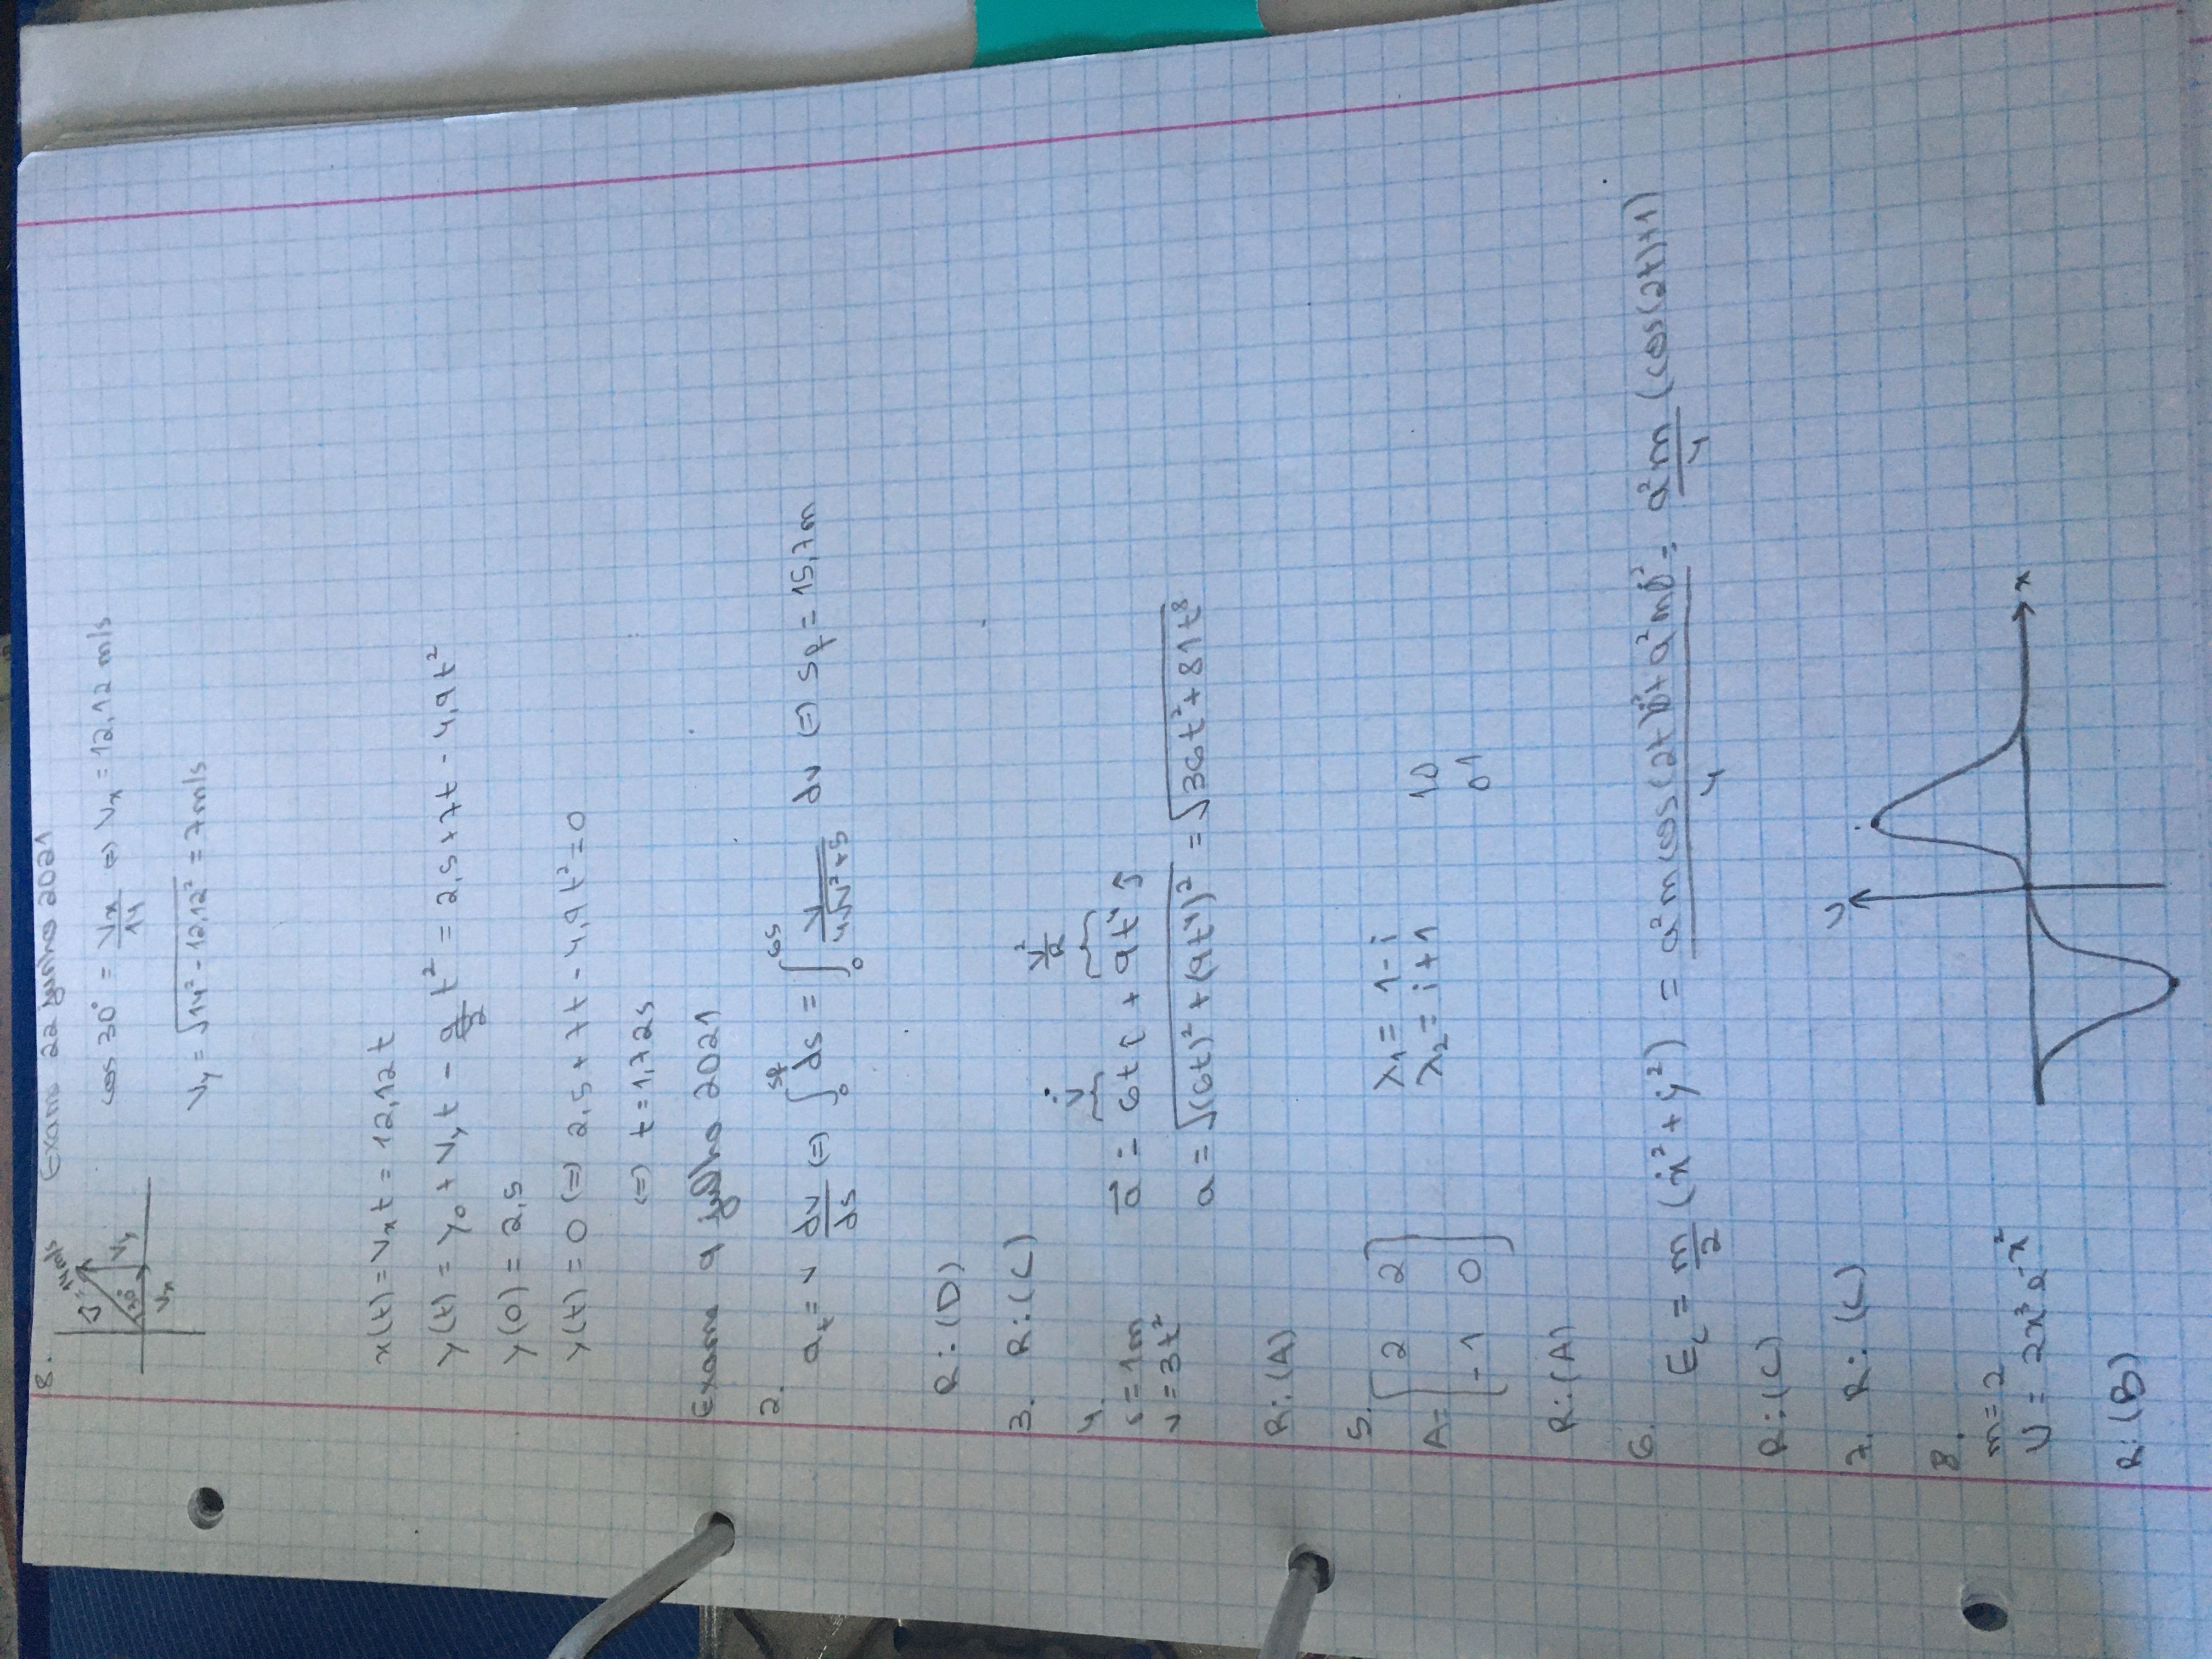 8. Exame 22 junho 2021
v = 14 m/s
30°
Vy
Vx
cos 30° = Vx/14 (=) Vx = 12,12 m/s
Vy = √(14² - 12,12²) = 7 m/s
x(t) = Vx t = 12,12 t
y(t) = y₀ + Vy t - g/2 t² = 2,5 + 7t - 4,9t²
y(0) = 2,5
y(t) = 0 (=) 2,5 + 7t - 4,9t² = 0
(=) t = 1,72s
Exame 9 julho 2021
2.
at = v dv/ds (=) ∫₀^sf ds = ∫₀^65 v/(4√(v²+5)) dv (=) sf = 15,7m
R: (D)
3. R: (C)
4.
r = 1m
v = 3t²
v̇ v²/R
a⃗ = 6t î + 9t⁴ ĵ
a = √((6t)² + (9t⁴)²) = √(36t² + 81t⁸)
R: (A)
5.
A = [2 2
-1 0]
λ₁ = 1 - i
λ₂ = i + 1
10
01
R: (A)
6.
Ec = m/2 (ẋ² + ẏ²) = = a²m/4 (cos(2t)+1)
R: (C)
7. R: (C)
U
x
8.
m = 2
U = 2x³ e^-x²
R: (B)